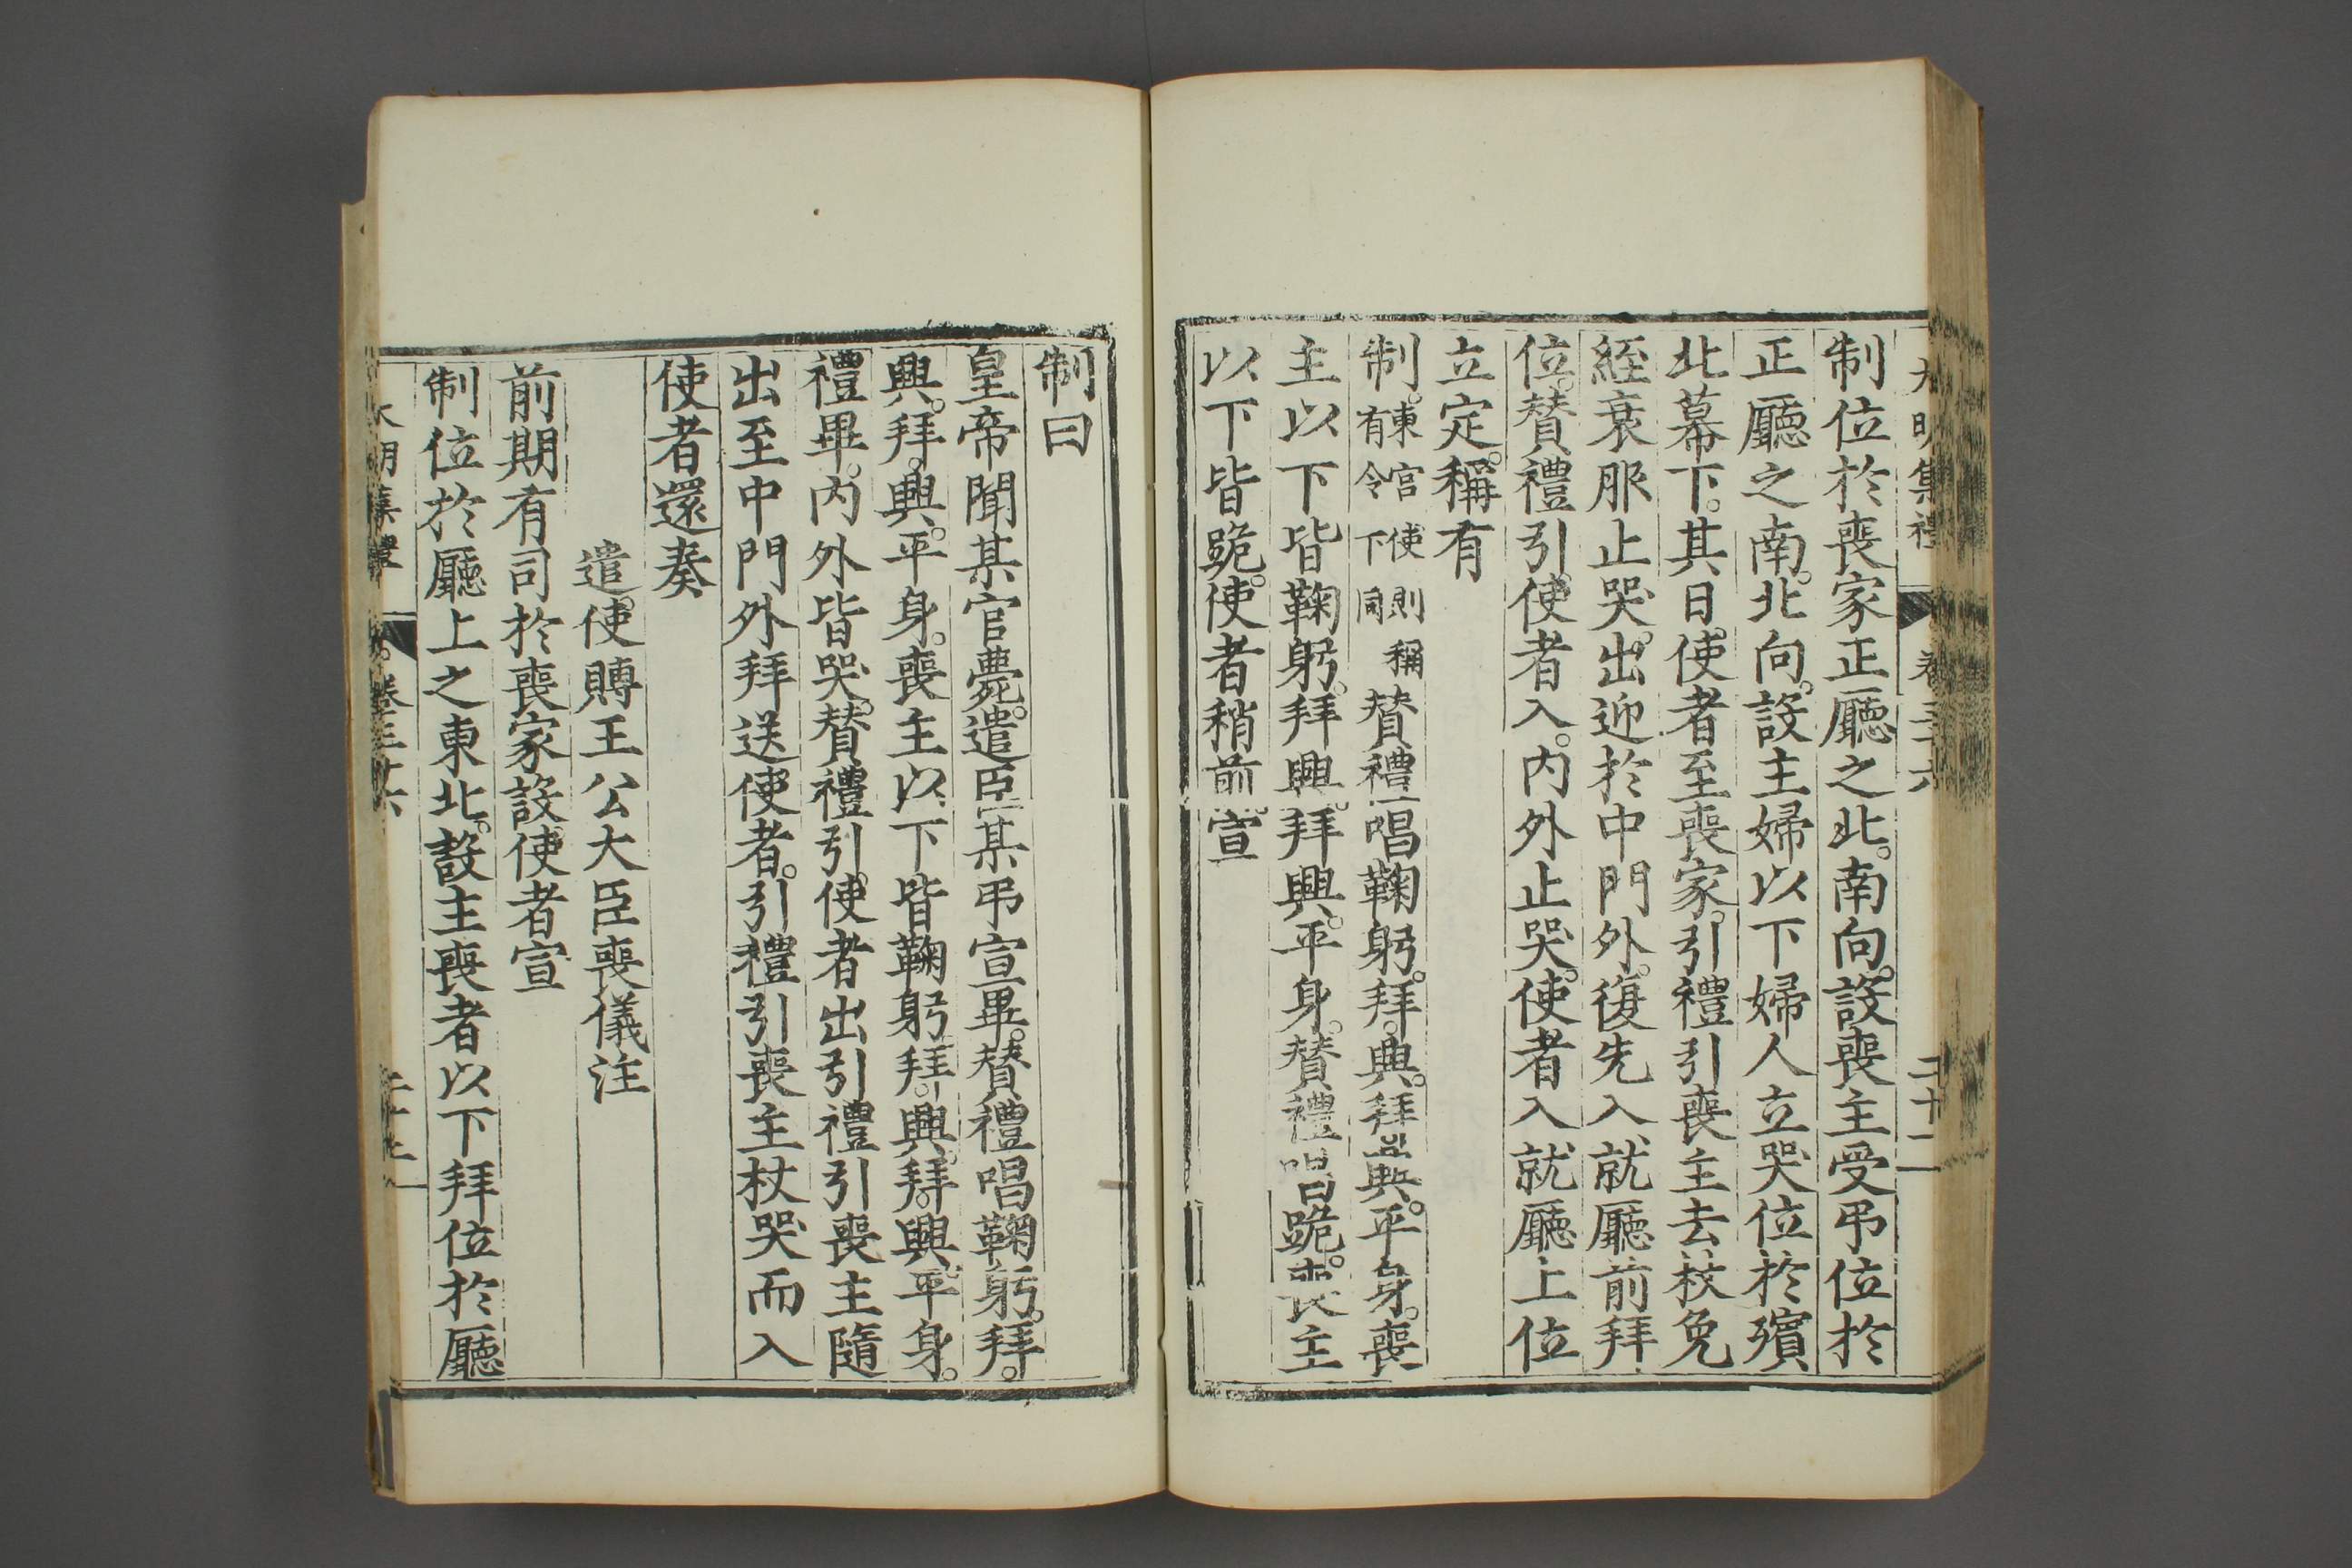 大明集禮 卷三十六 二十二
制位於喪家正廳之北。南向。設喪主受弔位於
正廳之南。北向。設主婦以下婦人立哭位於殯
北幕下。其日。使者至喪家。引禮引喪主去杖免
絰衰服止哭。出迎於中門外。復先入就廳前拜
位。贊禮引使者入。內外止哭。使者入就廳上位
立定。稱有
制。東宮使則稱有令下同贊禮唱鞠躬。拜。興。拜興。平身。喪
主以下皆鞠躬。拜興。拜興。平身。贊禮唱跪。喪主
以下皆跪。使者稍前。宣
制曰
皇帝聞某官薨。遣臣某弔宣畢。贊禮唱鞠躬。拜。
興。拜。興。平身。喪主以下皆鞠躬拜。興。拜。興。平身。
禮畢。內外皆哭。贊禮引使者出引禮引喪主隨
出至中門外拜送使者。引禮引喪主杖哭而入
使者還奏
遣使賻王公大臣喪儀注
前期有司於喪家設使者宣
制位於廳上之東北。設主喪者以下拜位於廳
大明集禮 卷三十六